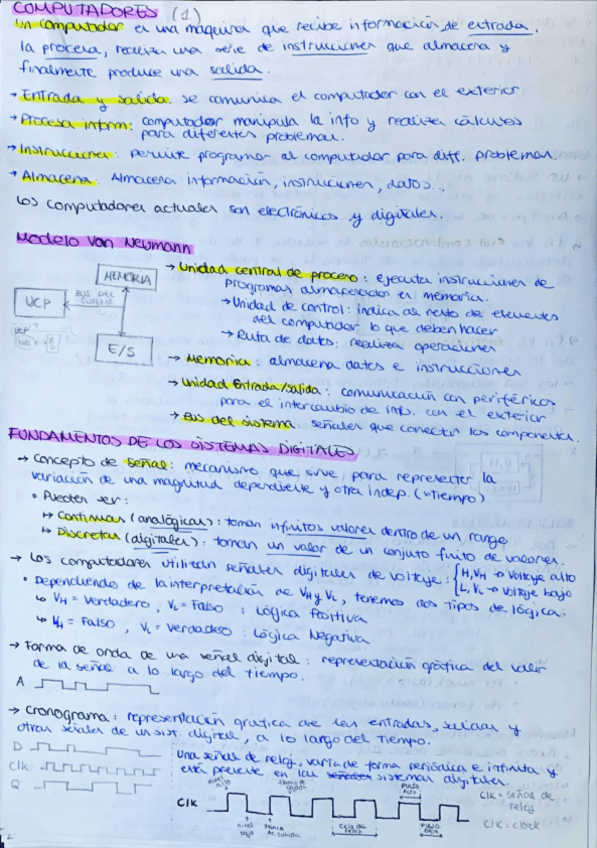 COMPUTADORES (1)
Un computador es una máquina que recibe información de entrada,
la procesa, realiza una serie de instrucciones que almacena y
finalmente produce una salida.
→ Entrada y salida: se comunica el computador con el exterior
→ Procesa inform: computador manipula la info y realiza cálculos
para diferentes problemas.
→ Instrucciones: permite programar al computador para diff. problemas.
→ Almacena: Almacena información, instrucciones, datos...
Los computadores actuales son electrónicos y digitales.
Modelo Von Neumann
MEMORIA
UCP
BUS DEL SISTEMA
E/S
UCP
→ Unidad central de proceso: ejecuta instrucciones de
programas almacenados en memoria.
→ Unidad de control: indica al resto de elementos
del computador lo que deben hacer
→ Ruta de datos: realiza operaciones
→ Memoria: almacena datos e instrucciones
→ Unidad Entrada/salida: comunicación con periféricos
para el intercambio de info. con el exterior
→ Bus del sistema: señales que conectan los componentes.
FUNDAMENTOS DE LOS SISTEMAS DIGITALES
→ Concepto de señal: mecanismo que sirve para representar la
variación de una magnitud dependiente y otra indep. (ᵘTiempo)
• Pueden ser:
↦ Continuas (analógicas): toman infinitos valores dentro de un rango
↦ Discretas (digitales): toman un valor de un conjuto finito de valores.
→ Los computadores utilizan señales digitales de voltaje: { H, VH → Voltaje alto
L, VL → Voltaje bajo
• Dependiendo de la interpretación de VH y VL, tenemos dos tipos de lógica:
↳ VH = Verdadero, VL = Falso : Lógica Positiva
↳ VH = Falso, VL = Verdadero : Lógica Negativa
→ Forma de onda de una señal digital: representación gráfica del valor
de la señal a lo largo del tiempo.
A
→ Cronograma: representación gráfica de las entradas, salidas y
otras señales de un sist. digital, a lo largo del tiempo
D
Clk
Q
Una señal de reloj, varía de forma periódica e infinita y
está presente en los señales sistemas digitales.
Clk
nivel alto
flanco de subida
PULSO ALTO
nivel bajo
flanco de bajada
Ciclo de reloj
PULSO BAJO
Clk = señal de
reloj
Clk = clock